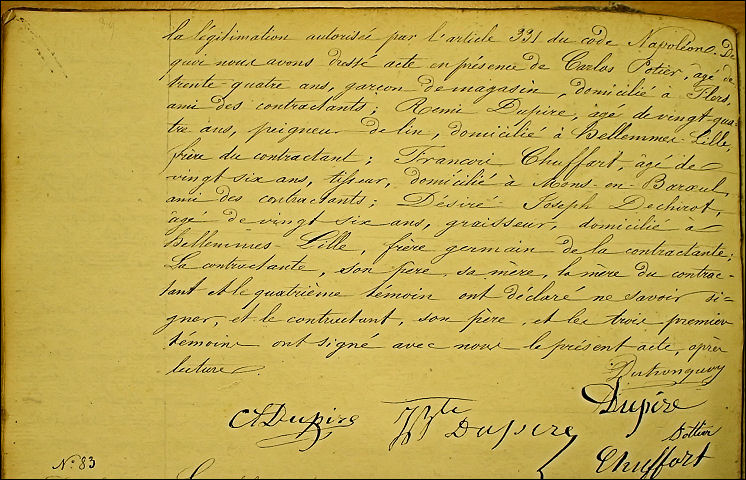 la légitimation autorisée par l'article 331 du code Napoléon. De
quoi nous avons dressé acte en présence de Carlos Potier, âgé de
trente quatre ans, garçon de magasin, domicilié à Flers,
ami des contractants; Remi Dupire, âgé de vingt-qua-
tre ans, peigneur de lin, domicilié à Hellemmes-Lille,
frère du contractant; Francois Chuffart, âgé de
vingt six ans, tisseur, domicilié à Mons-en-Barœul,
ami des contractants; Désiré Joseph Dechirot,
âgé de vingt six ans, graisseur, domicilié à
Hellemmes-Lille, frère germain de la contractante;
La contractante, son père, sa mère, la mère du contrac-
tant et le quatrième témoin ont déclaré ne savoir si-
gner, et le contractant, son père, et les trois premiers
témoins ont signé avec nous le présent acte, après
lecture.
Dupire
Dupire
Dupire
Pottier
Chuffart
N° 83